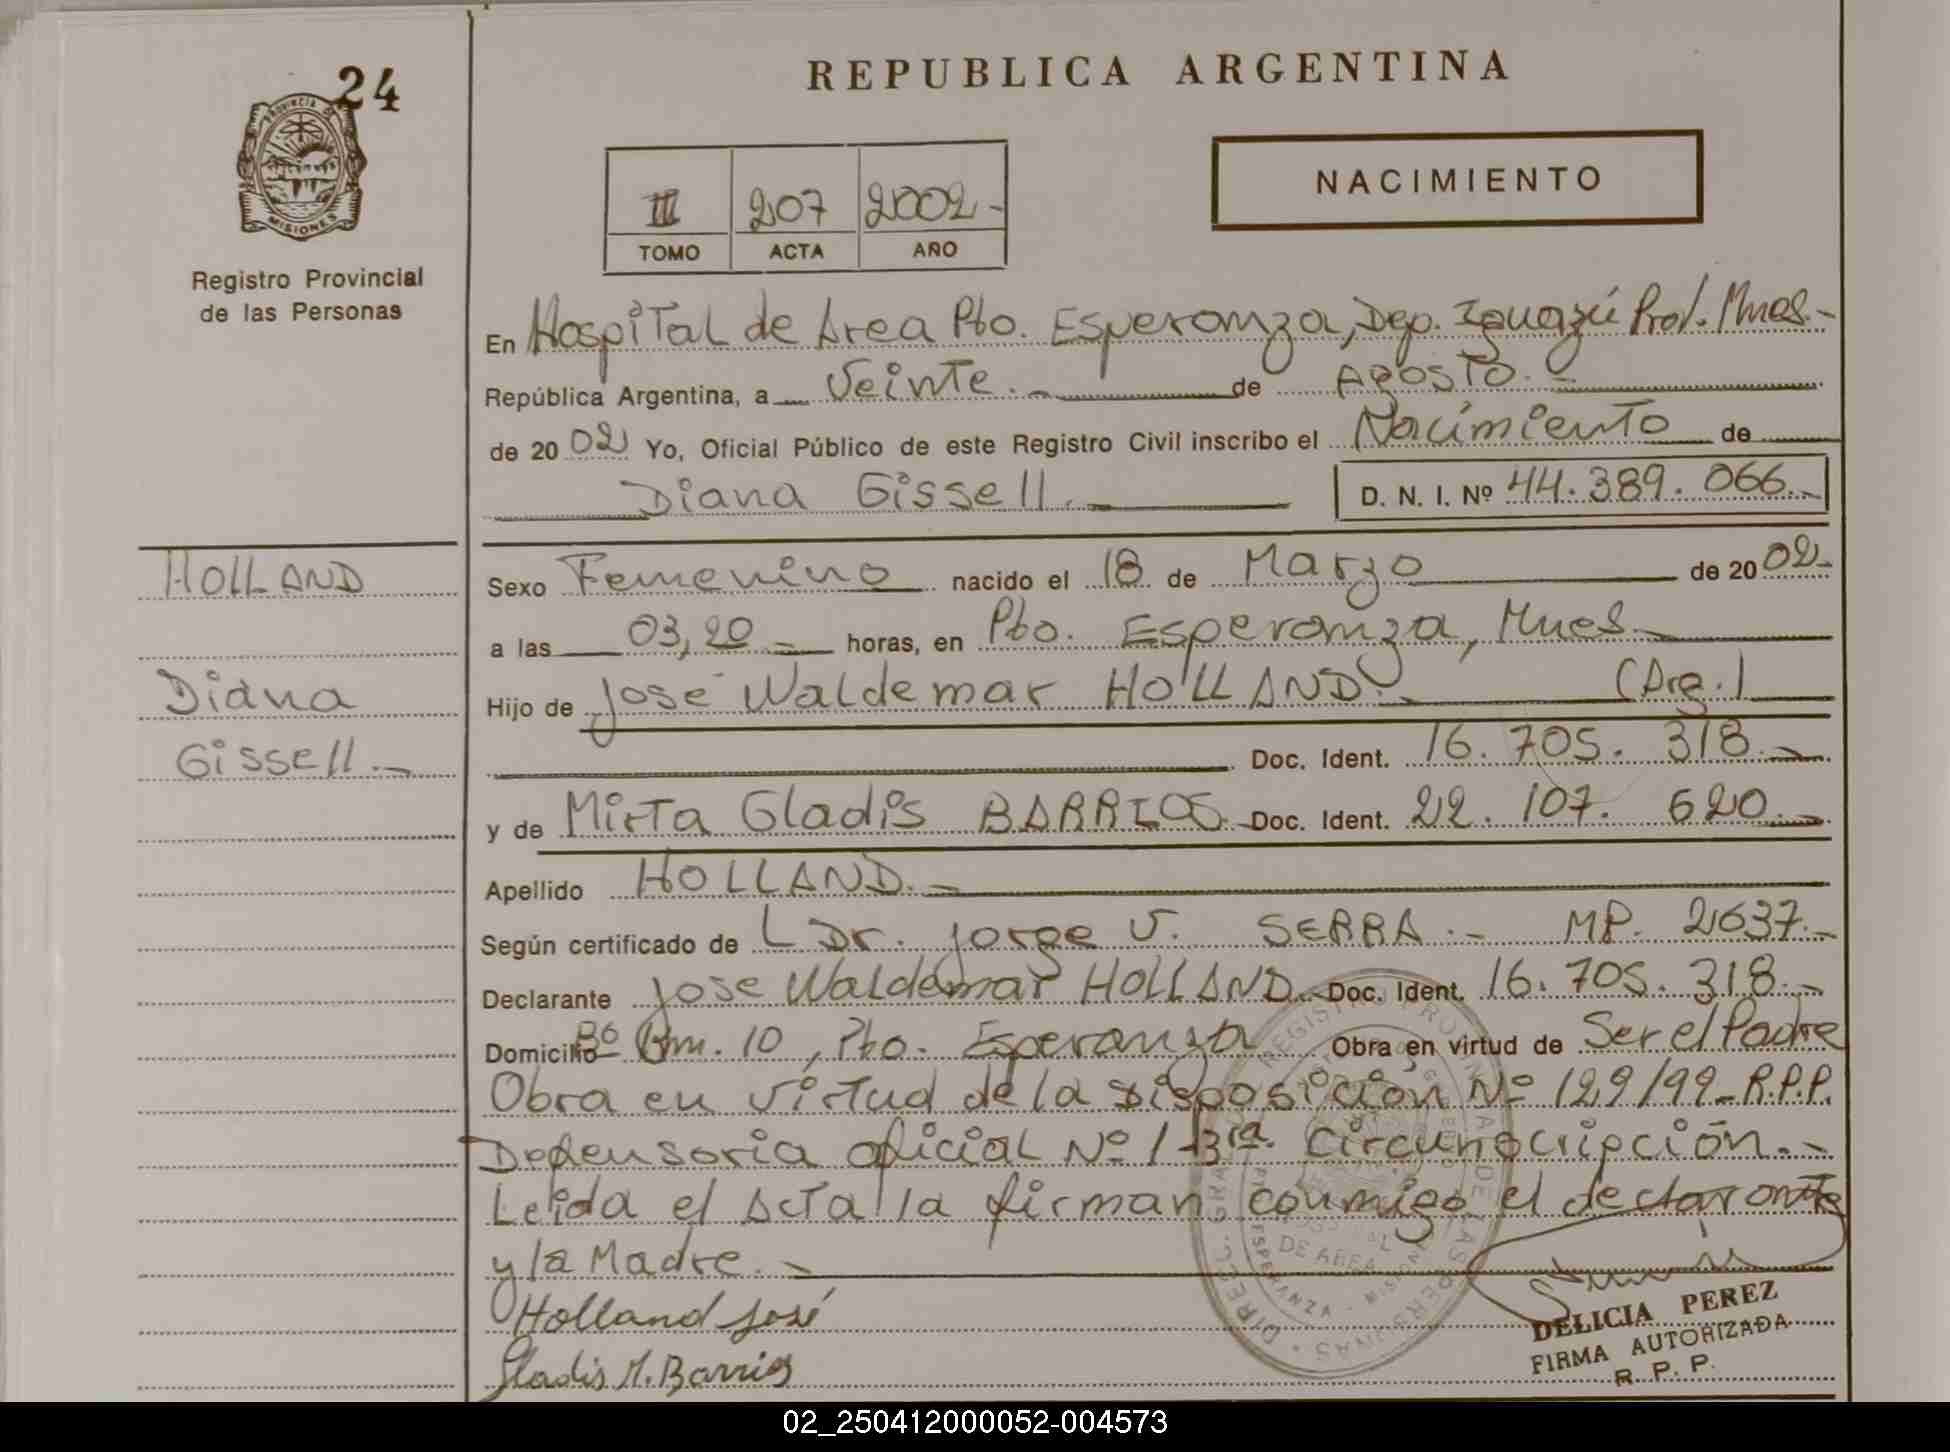 24
REPUBLICA ARGENTINA
PROVINCIA DE
MISIONES
Registro Provincial
de las Personas
III 207 2002-
TOMO ACTA AÑO
NACIMIENTO
En Hospital de Area Pto. Esperanza, Dep. Iguazú Prov. Mnes.-
República Argentina, a Veinte.- de Agosto.-
de 20 02 Yo, Oficial Público de este Registro Civil inscribo el Nacimiento de
Diana Gissell.
D. N. I. Nº 44.389.066.-
HOLLAND
Diana
Gissell.-
Sexo Femenino nacido el 18 de Marzo de 20 02-
a las 03,20- horas, en Pto. Esperanza, Mnes-
Hijo de José Waldemar HOLLAND.- (Arg.)
Doc. Ident. 16.705.318.-
y de Mirta Gladis BARRIOS.- Doc. Ident. 22.107.620.-
Apellido HOLLAND.-
Según certificado de Dr. Jorge V. SERRA.- MP. 2637.-
Declarante Jose Waldemar HOLLAND. Doc. Ident. 16.705.318.-
Domicilio Bº Km. 10, Pto. Esperanza Obra en virtud de Ser el Padre
Obra en virtud de la Disposición Nº 129/99-R.P.P.
Defensoria oficial Nº 1-3ra. Circunscripción.-
Leida el Acta la firman conmigo el declarante
y la Madre.-
Holland José
Gladis M. Barrios
DELICIA PEREZ
FIRMA AUTORIZADA
R. P. P.
02_250412000052-004573